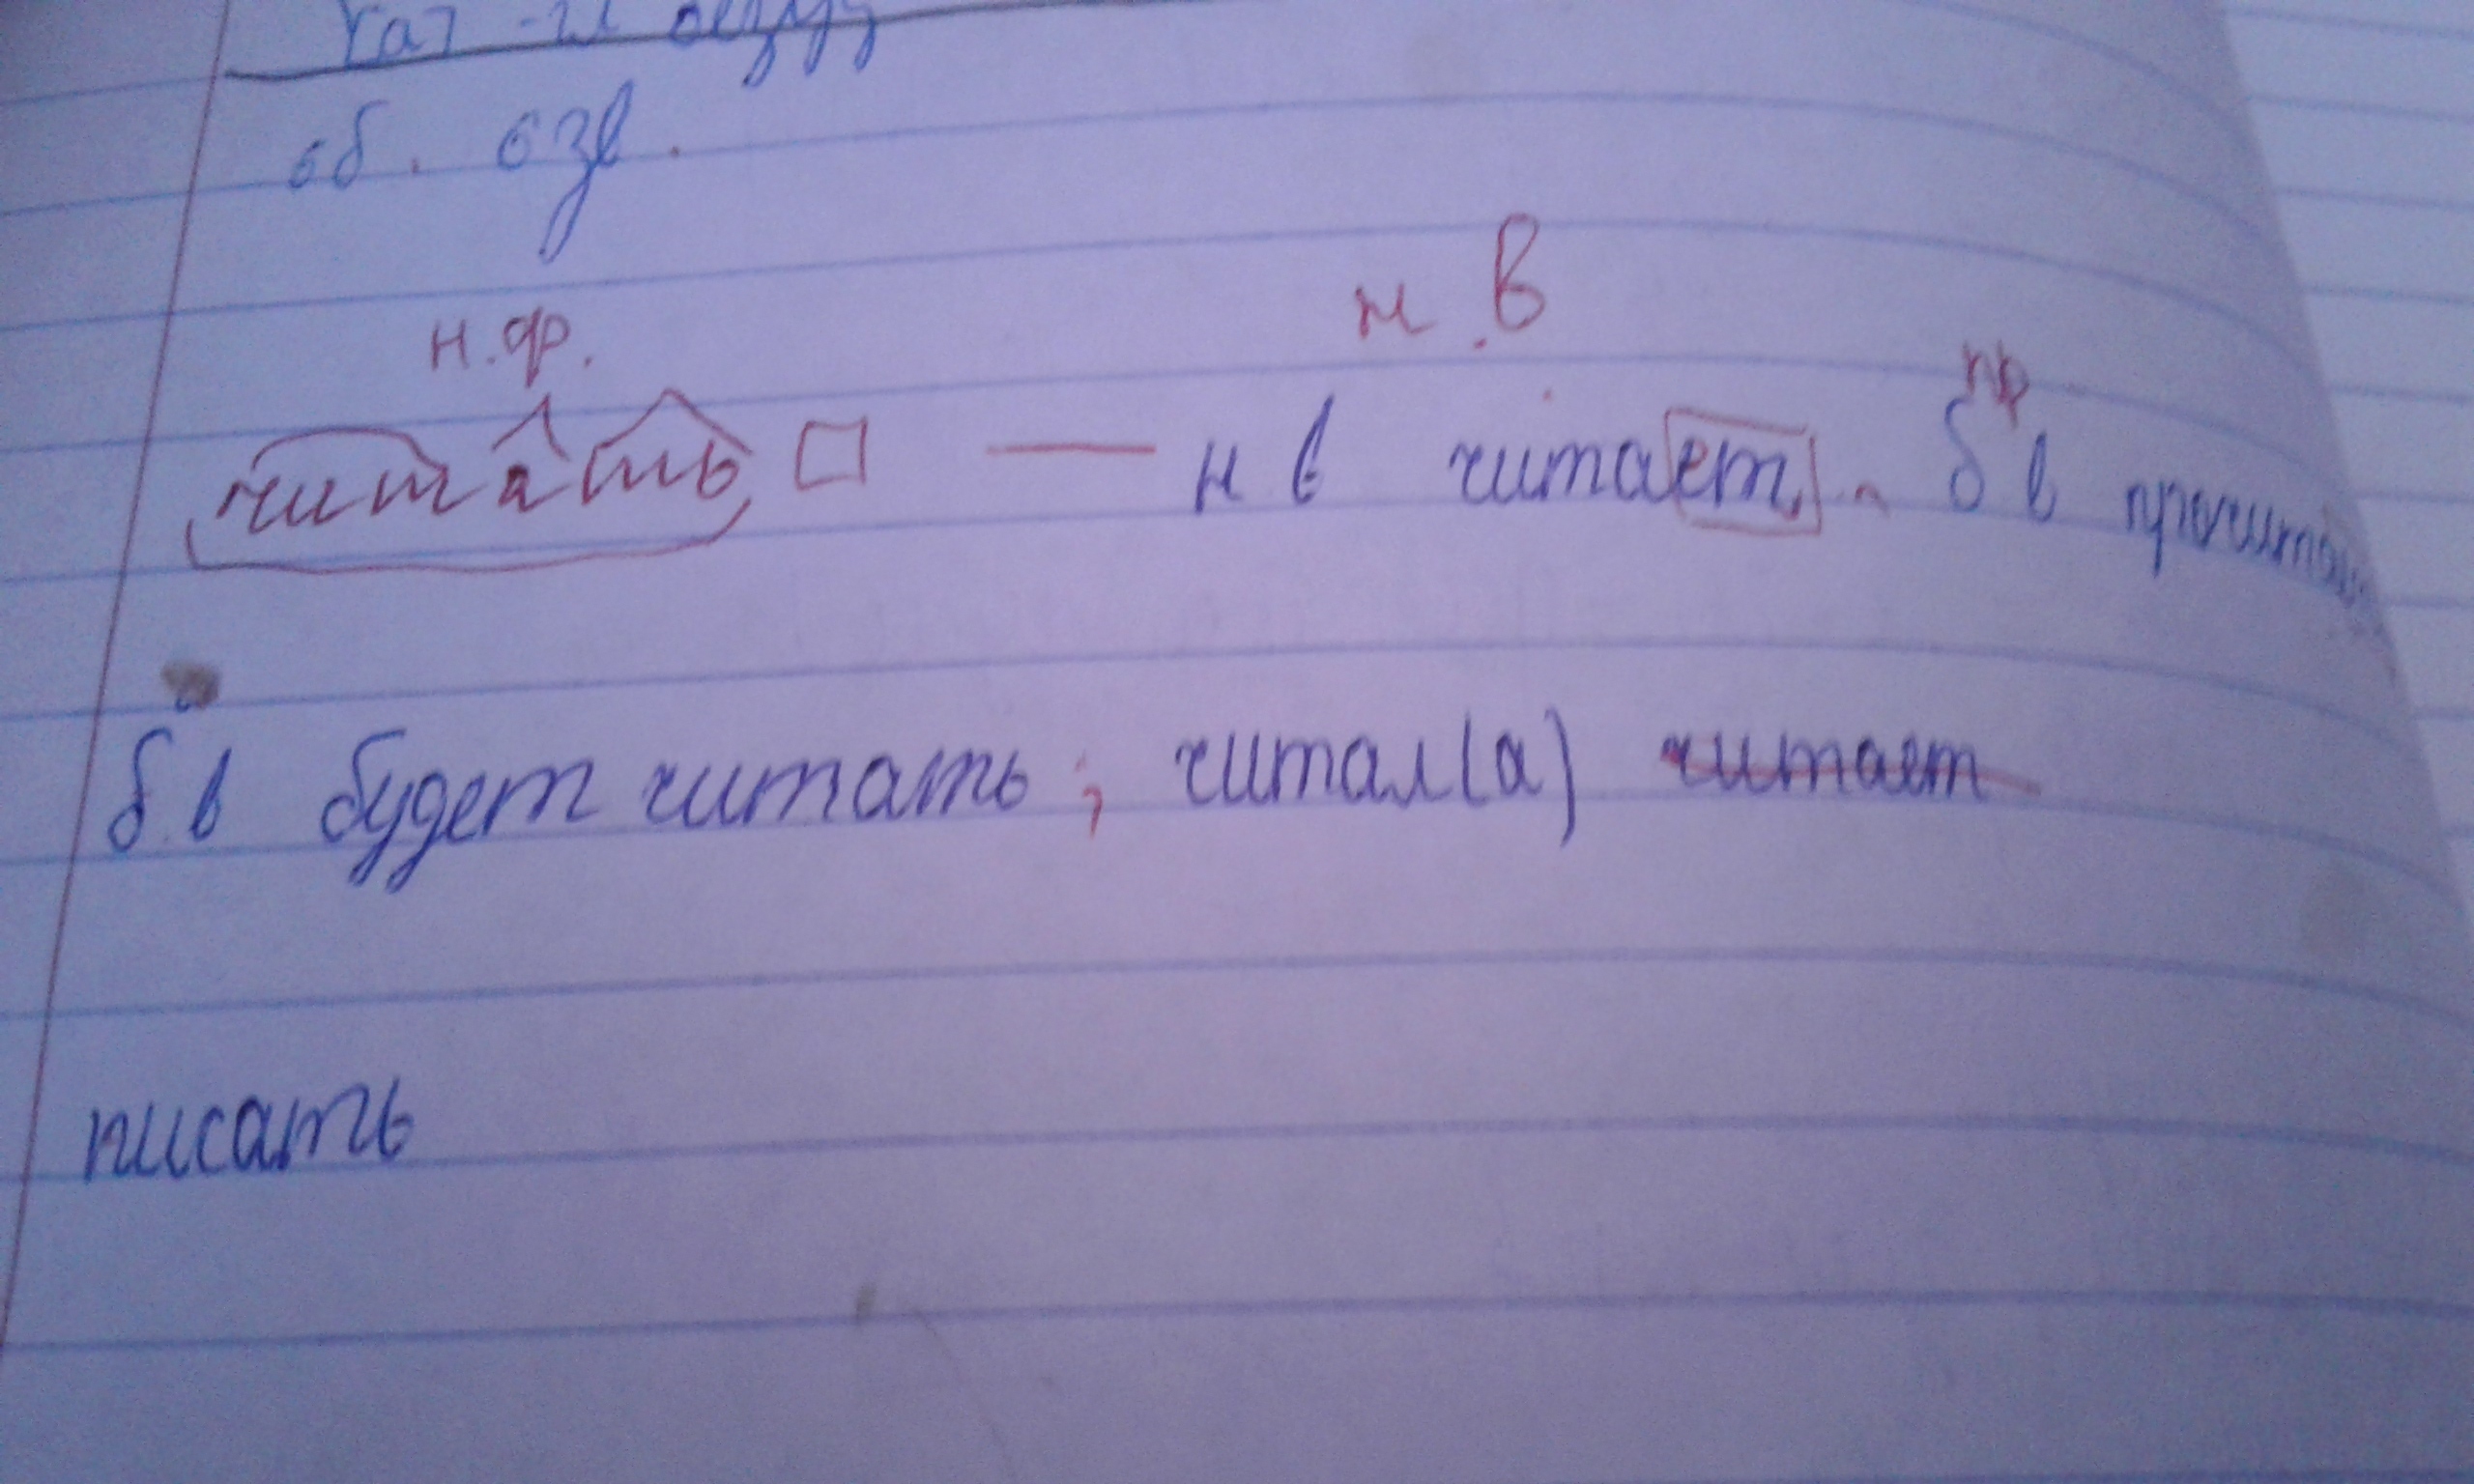 об. взв.
н.ф.
н.в
читать — н в читает. б в
пр
б.в будет читать; читал(а) читает
писать